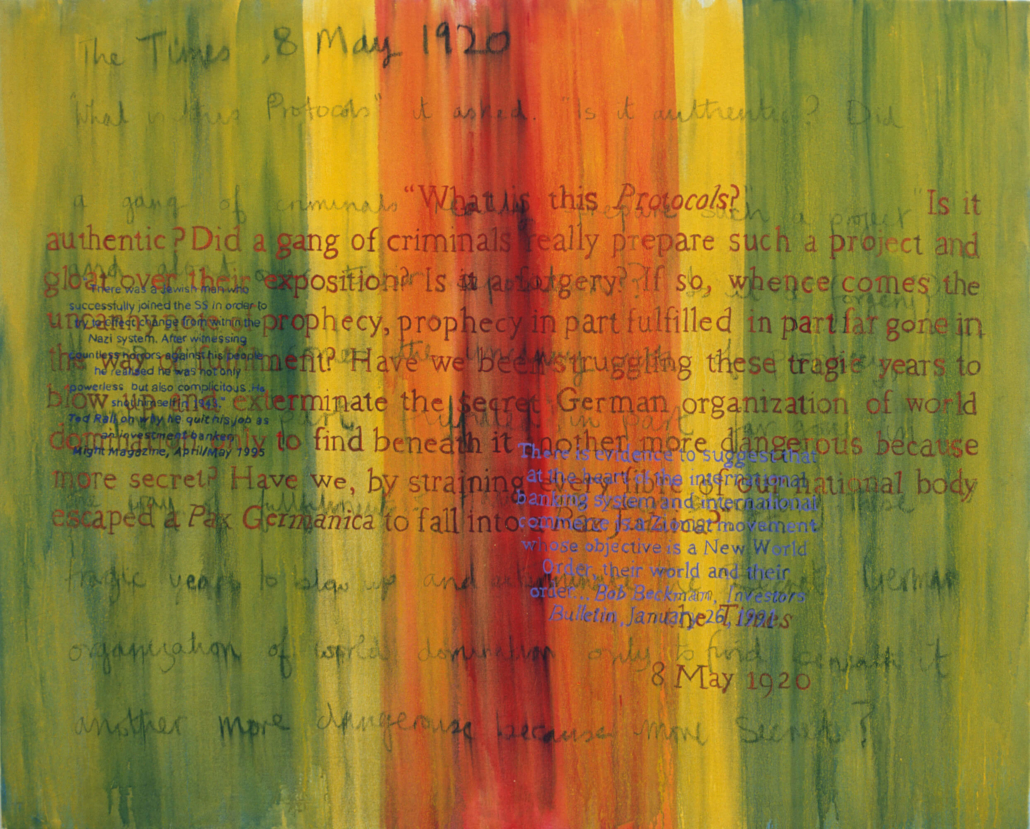 The Times, 8 May 1920
"What is this Protocols" it asked. "Is it authentic? Did
a gang of criminals prepare such a project
"What is this Protocols?" "Is it
authentic? Did a gang of criminals really prepare such a project and
gloat over their exposition? Is it a forgery? If so, whence comes the
uncanny note of prophecy, prophecy in part fulfilled in part far gone in
the way of fulfilment? Have we been struggling these tragic years to
blow up and exterminate the secret German organization of world
domination only to find beneath it another more dangerous because
more secret? Have we, by straining every fibre of our national body
escaped a Pax Germanica to fall into a Pax
There was a Jewish man who
successfully joined the SS in order to
try to effect change from within the
Nazi system. After witnessing
countless horrors against his people
he realised he was not only
powerless but also complicitous. He
shot himself in 1943."
Ted Rall on why he quit his job as
an investment banker
Might Magazine, April/May 1995
There is evidence to suggest that
at the heart of the international
banking system and international
commerce is a Zionat movement
whose objective is a New World
Order, their world and their
order... Bob Beckman, Investors
Bulletin, January 26,
The Times
8 May 1920
tragic years to blow up and German
organization of world domination only to find beneath it
another more dangerouse because more Secrete?